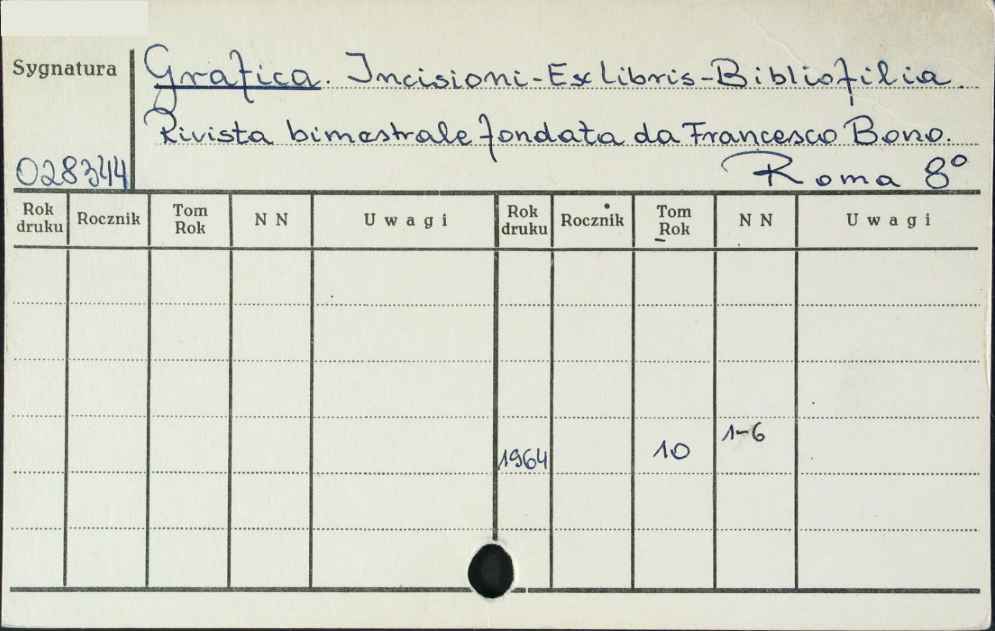 Sygnatura
Grafica. Incisioni-Ex libris-Bibliofilia.
Rivista bimestrale fondata da Francesco Bono.
028344
Roma 8°
Rok druku Rocznik Tom Rok N N Uwagi Rok druku Rocznik Tom Rok N N Uwagi
1964 10 1-6